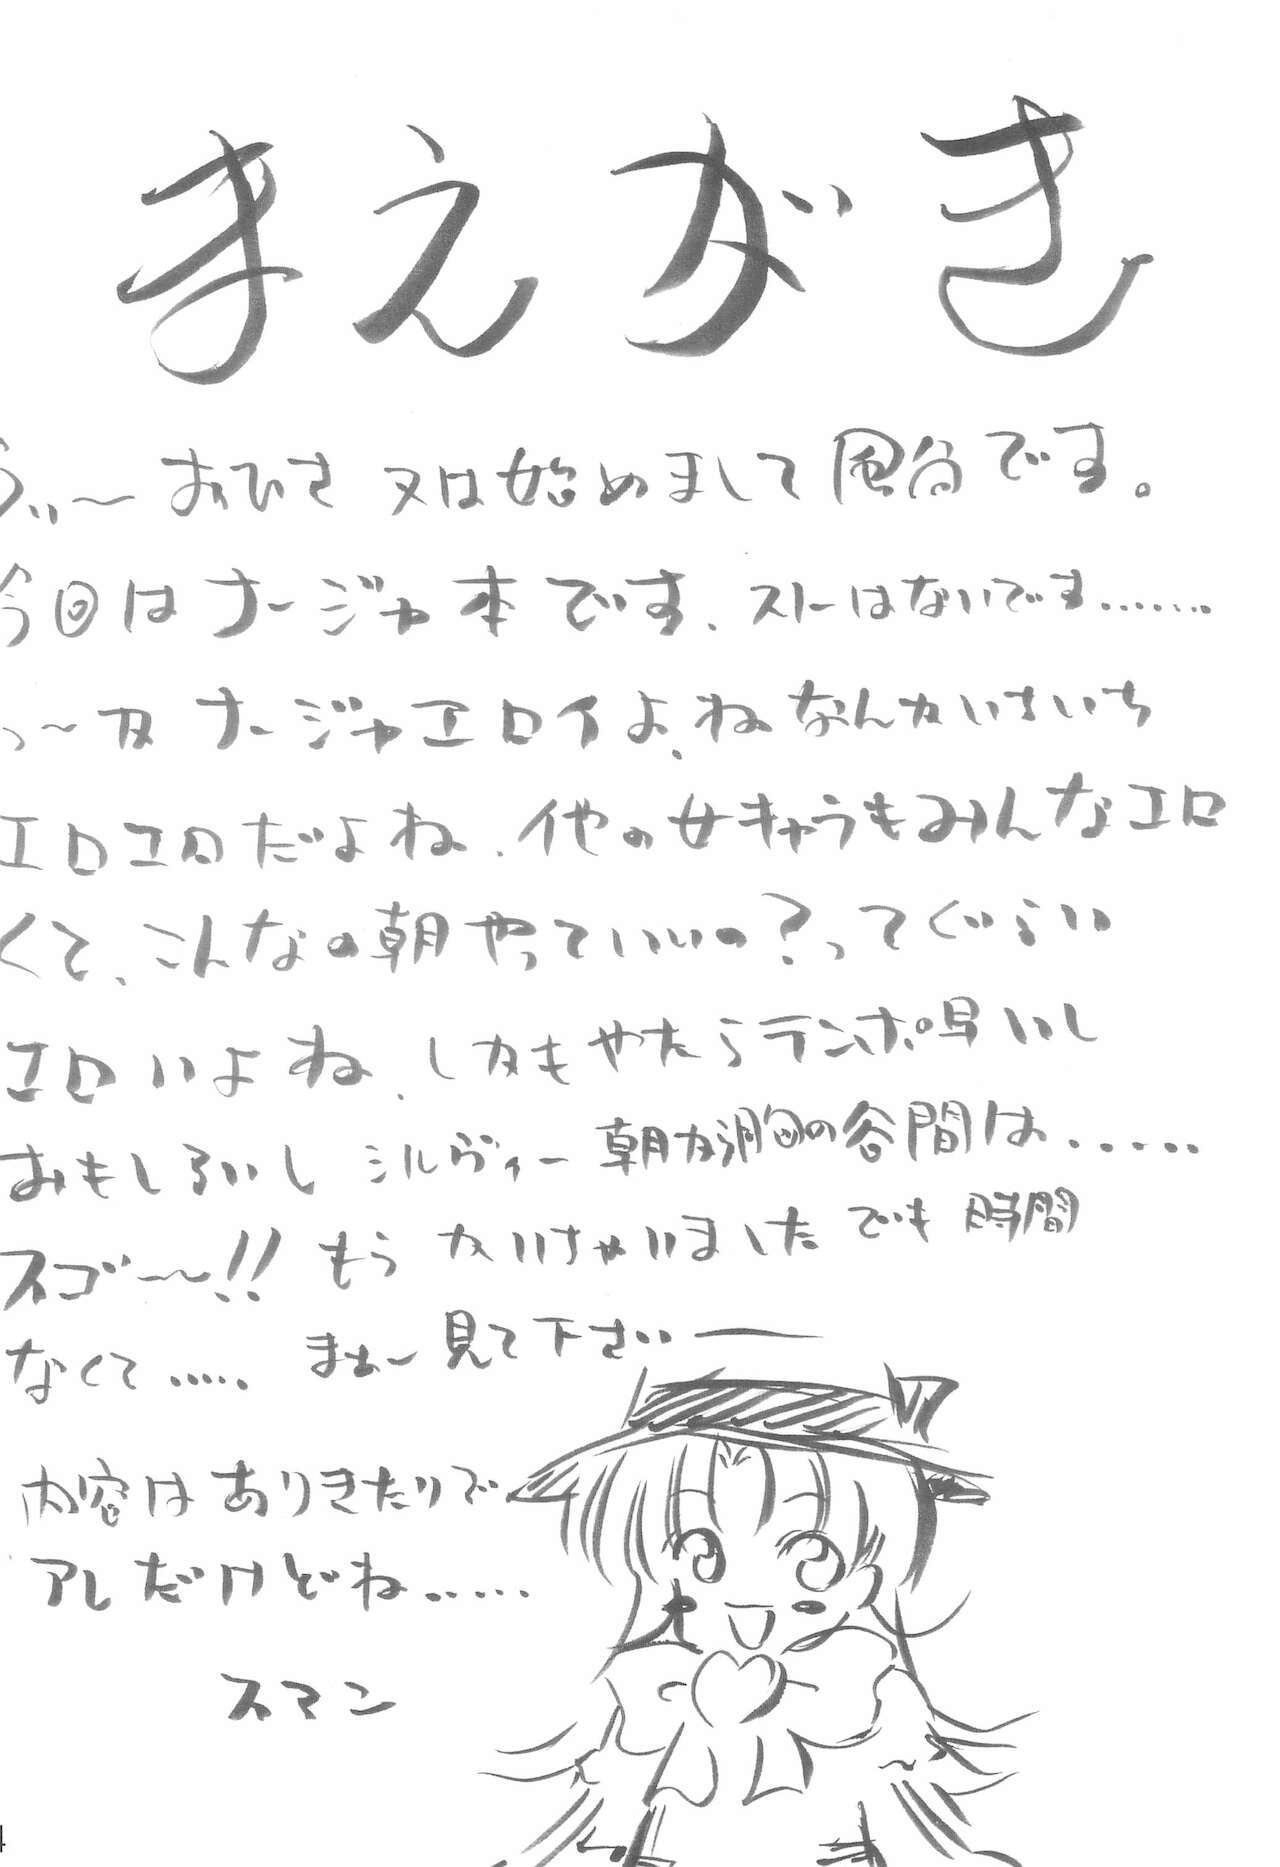 まえがき
うぃ～おひさ 又は始めまして風呂です。
今回はナージャ本です、ストーはないです……
っ～カ ナージャエロイよね、なんかいちいち
エロエロだよね、他の女キャラもみんなエロ
くて、こんなの朝やっていいの？ってぐらい
エロいよね、しかもやたらテンポ早いし
おもしろいし シルヴィー 朝から胸の谷間は……
スゴ～!! もう かいちゃいました でも 時間
なくて…… まぁ～見て下さい――
内容はありきたりで
アレだけどね……
スマン
4